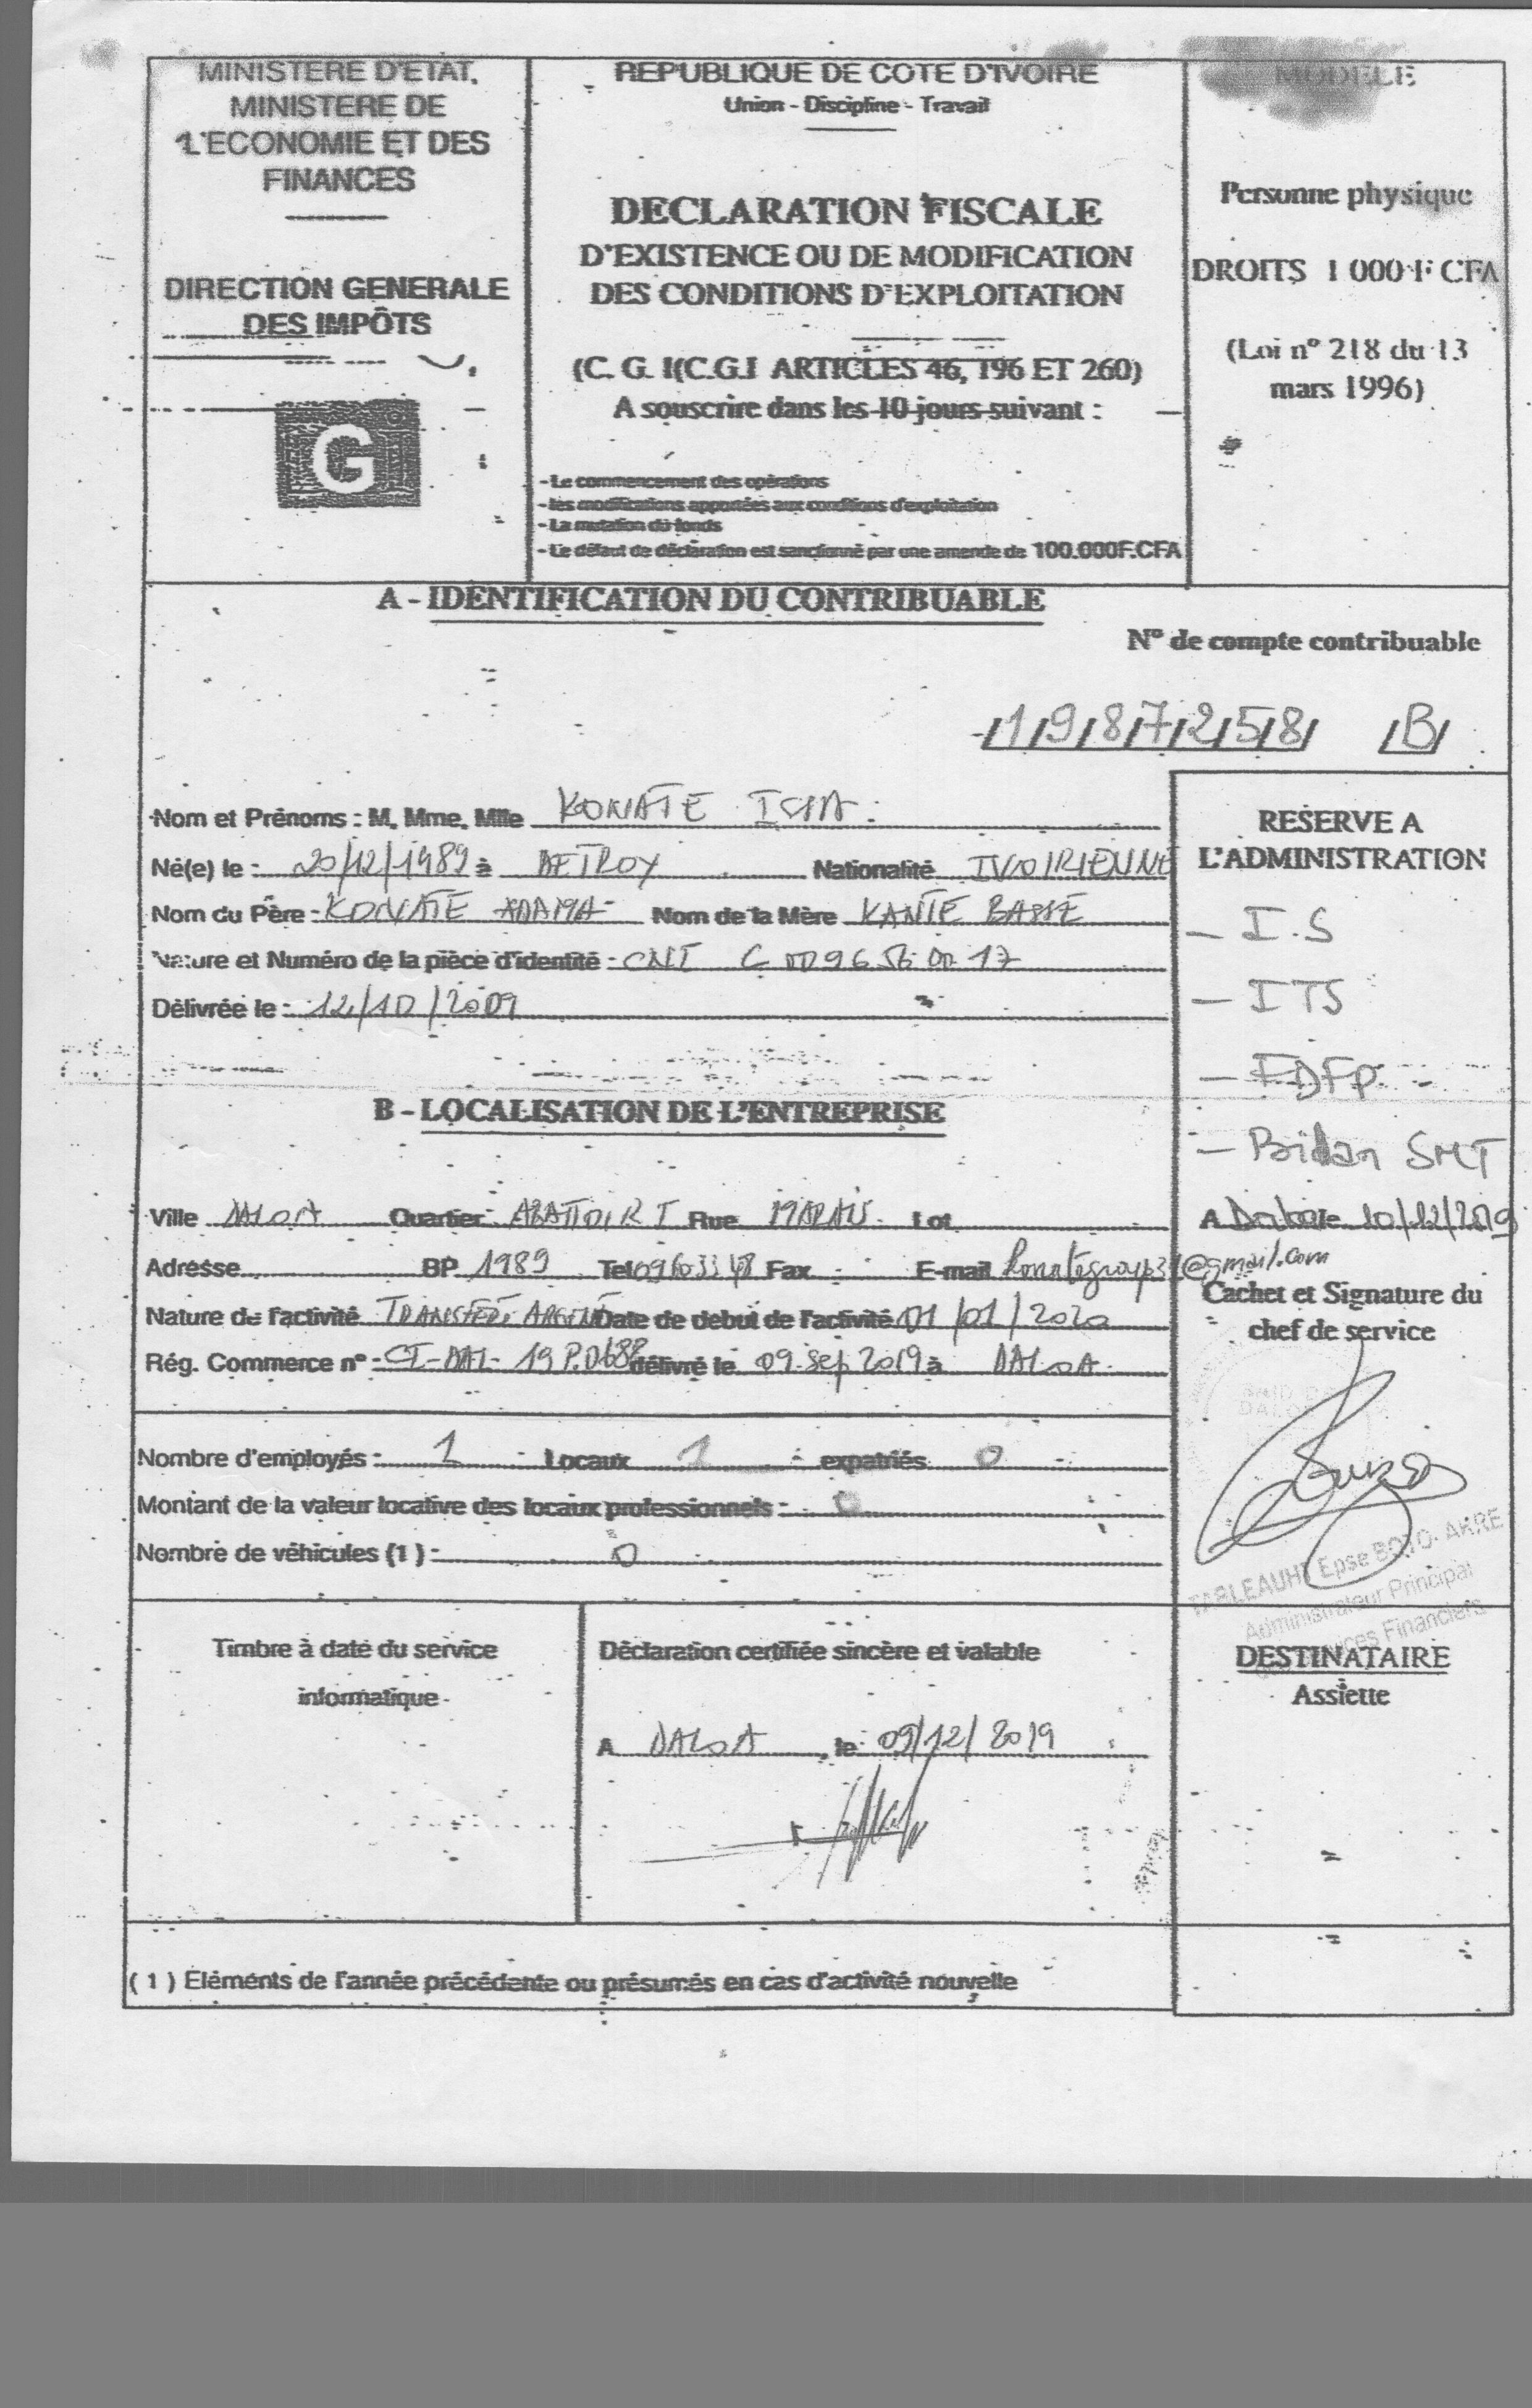 MINISTERE D'ETAT,
MINISTERE DE
L'ECONOMIE ET DES
FINANCES
DIRECTION GENERALE
DES IMPÔTS
G
REPUBLIQUE DE COTE D'IVOIRE
Union - Discipline - Travail
DECLARATION FISCALE
D'EXISTENCE OU DE MODIFICATION
DES CONDITIONS D'EXPLOITATION
(C. G. I(C.G.I ARTICLES 46, 196 ET 260)
A souscrire dans les 10 jours suivant :
- Le commencement des opérations
- les modifications apportées aux conditions d'exploitation
- La mutation du fonds
- Le défaut de déclaration est sanctionné par une amende de 100.000F.CFA
MODELE
Personne physique
DROITS 1 000 F CFA
(Loi n° 218 du 13
mars 1996)
A - IDENTIFICATION DU CONTRIBUABLE
N° de compte contribuable
/1/9/8/7/2/5/8/ /B/
Nom et Prénoms : M. Mme. Mlle KONATE
Né(e) le : 20/12/1989 à Nationalité IVOIRIENNE
Nom du Père : KONATE ADAMA Nom de la Mère KANTE
Nature et Numéro de la pièce d'identité : CNI C 0096 56 00 17
Délivrée le : 12/10/2009
B - LOCALISATION DE L'ENTREPRISE
Ville DALOA Quartier ABATTOIR I Rue Lot
Adresse BP 1989 Tel 09603348 Fax E-mail @gmail.com
Nature de l'activité TRANSFERT ARGENT Date de debut de l'activité 01/01/2020
Rég. Commerce n° CI-DAL- 19 P. délivré le 09 sep 2019 à DALOA
Nombre d'employés : 1 Locaux 1 expatriés 0
Montant de la valeur locative des locaux professionnels : 0
Nombre de véhicules (1) : 0
RESERVE A
L'ADMINISTRATION
- I.S
- ITS
- FDFP
- Bilan SMT
A Daloa le 10/12/2019
Cachet et Signature du
chef de service
Epse BOTO- AKRE
Administrateur Principal
Services Financiers
Timbre à date du service
informatique
Déclaration certifiée sincère et valable
A DALOA, le 09/12/2019
DESTINATAIRE
Assiette
( 1 ) Eléments de l'année précédente ou présumés en cas d'activité nouvelle